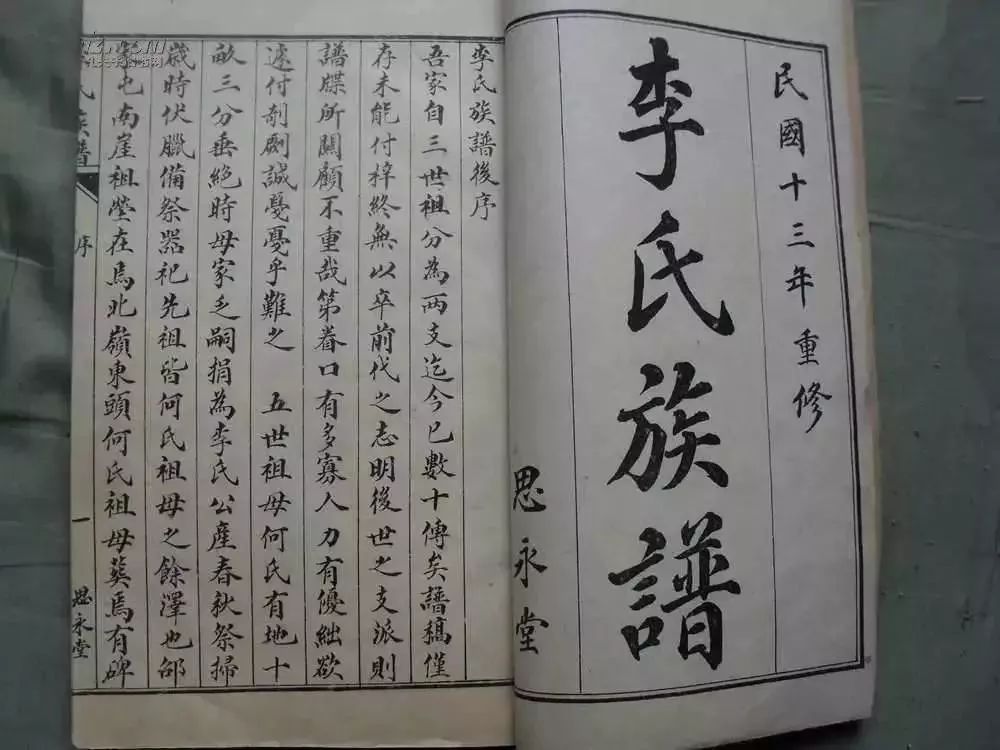 民國十三年重修
李氏族譜
思永堂
李氏族譜後序
吾家自三世祖分為兩支迄今已數十傳矣譜稿僅
存未能付梓終無以卒前代之志明後世之支派則
譜牒所關顧不重哉第眷口有多寡人力有優絀欲
遽付剞劂誠戞戞乎難之 五世祖母何氏有地十
畝三分垂絕時母家乏嗣捐為李氏公產春秋祭掃
歲時伏臘備祭器祀先祖皆何氏祖母之餘澤也邰
也南崖祖塋在馬北嶺東頭何氏祖母葬焉有碑
氏族譜
序
一
思永堂